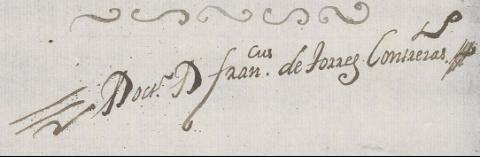 Doct.r D fran.cus de torres Contreras